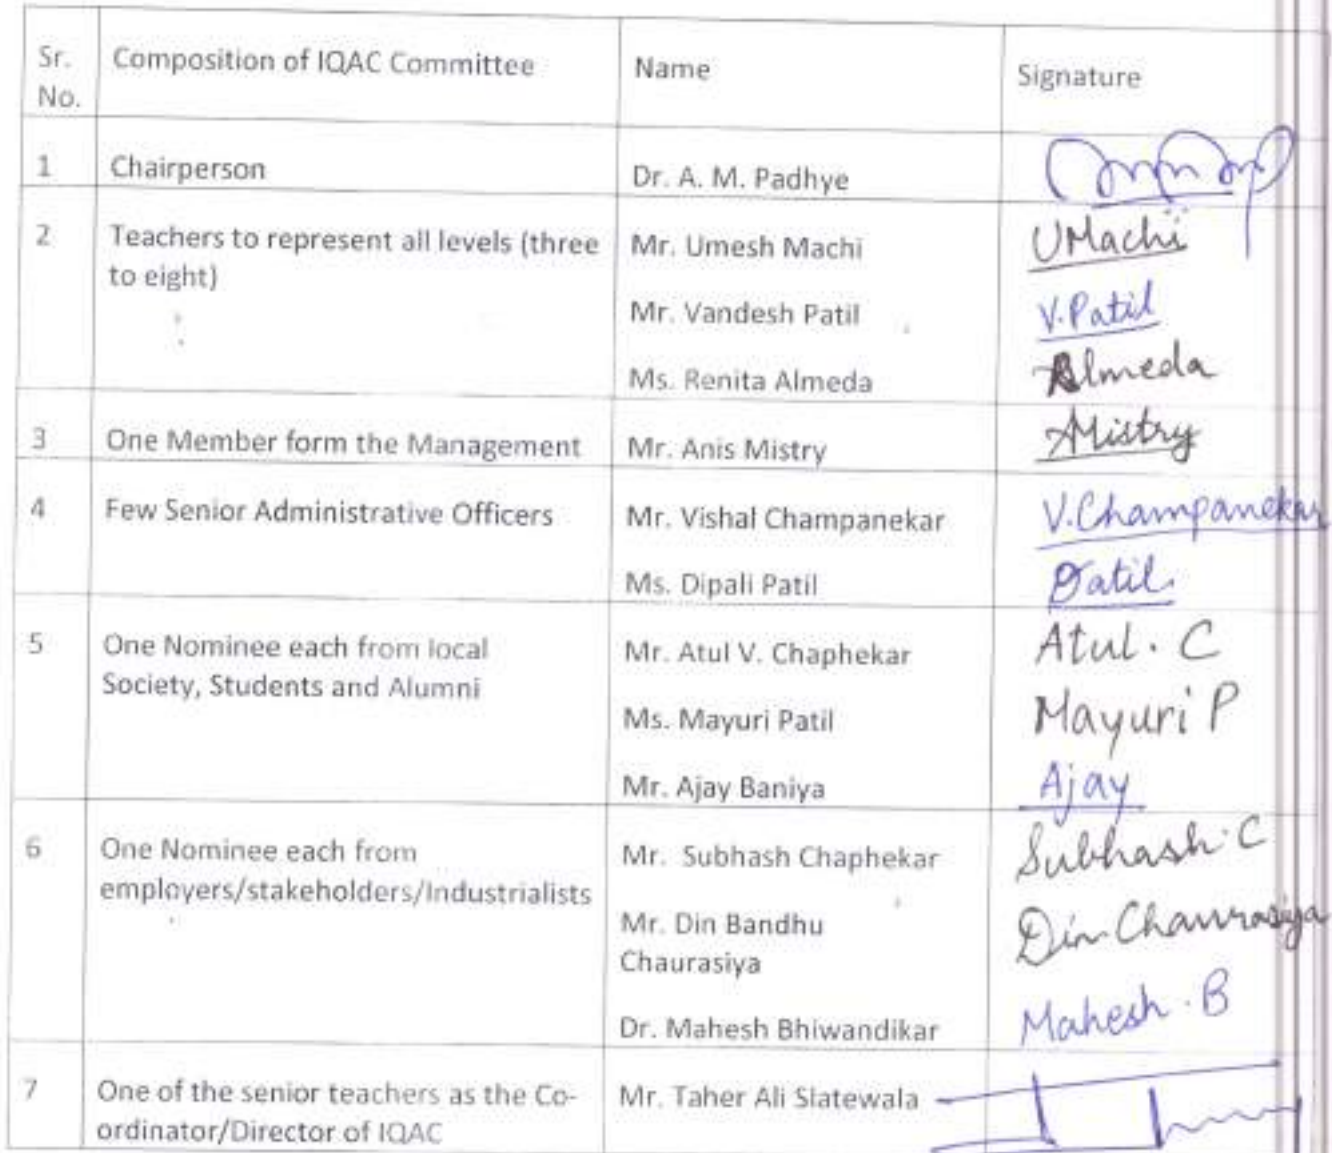 Sr. No. Composition of IQAC Committee Name Signature
1 Chairperson Dr. A. M. Padhye
2 Teachers to represent all levels (three to eight)
Mr. Umesh Machi UMachi
Mr. Vandesh Patil V.Patil
Ms. Renita Almeda Almeda
3 One Member form the Management Mr. Anis Mistry AMistry
4 Few Senior Administrative Officers Mr. Vishal Champanekar V.Champanekar
Ms. Dipali Patil Patil
5 One Nominee each from local Society, Students and Alumni
Mr. Atul V. Chaphekar Atul. C
Ms. Mayuri Patil Mayuri P
Mr. Ajay Baniya Ajay
6 One Nominee each from employers/stakeholders/Industrialists
Mr. Subhash Chaphekar Subhash.C
Mr. Din Bandhu Chaurasiya Din Chaurasiya
Dr. Mahesh Bhiwandikar Mahesh.B
7 One of the senior teachers as the Co-ordinator/Director of IQAC
Mr. Taher Ali Slatewala